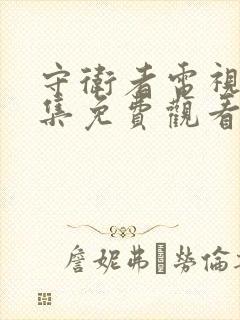 守衛者電視
集免費觀看
詹妮弗 勞倫